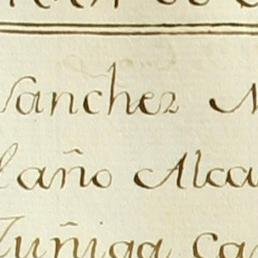 Sanchez
año Alca
Zuñiga ca